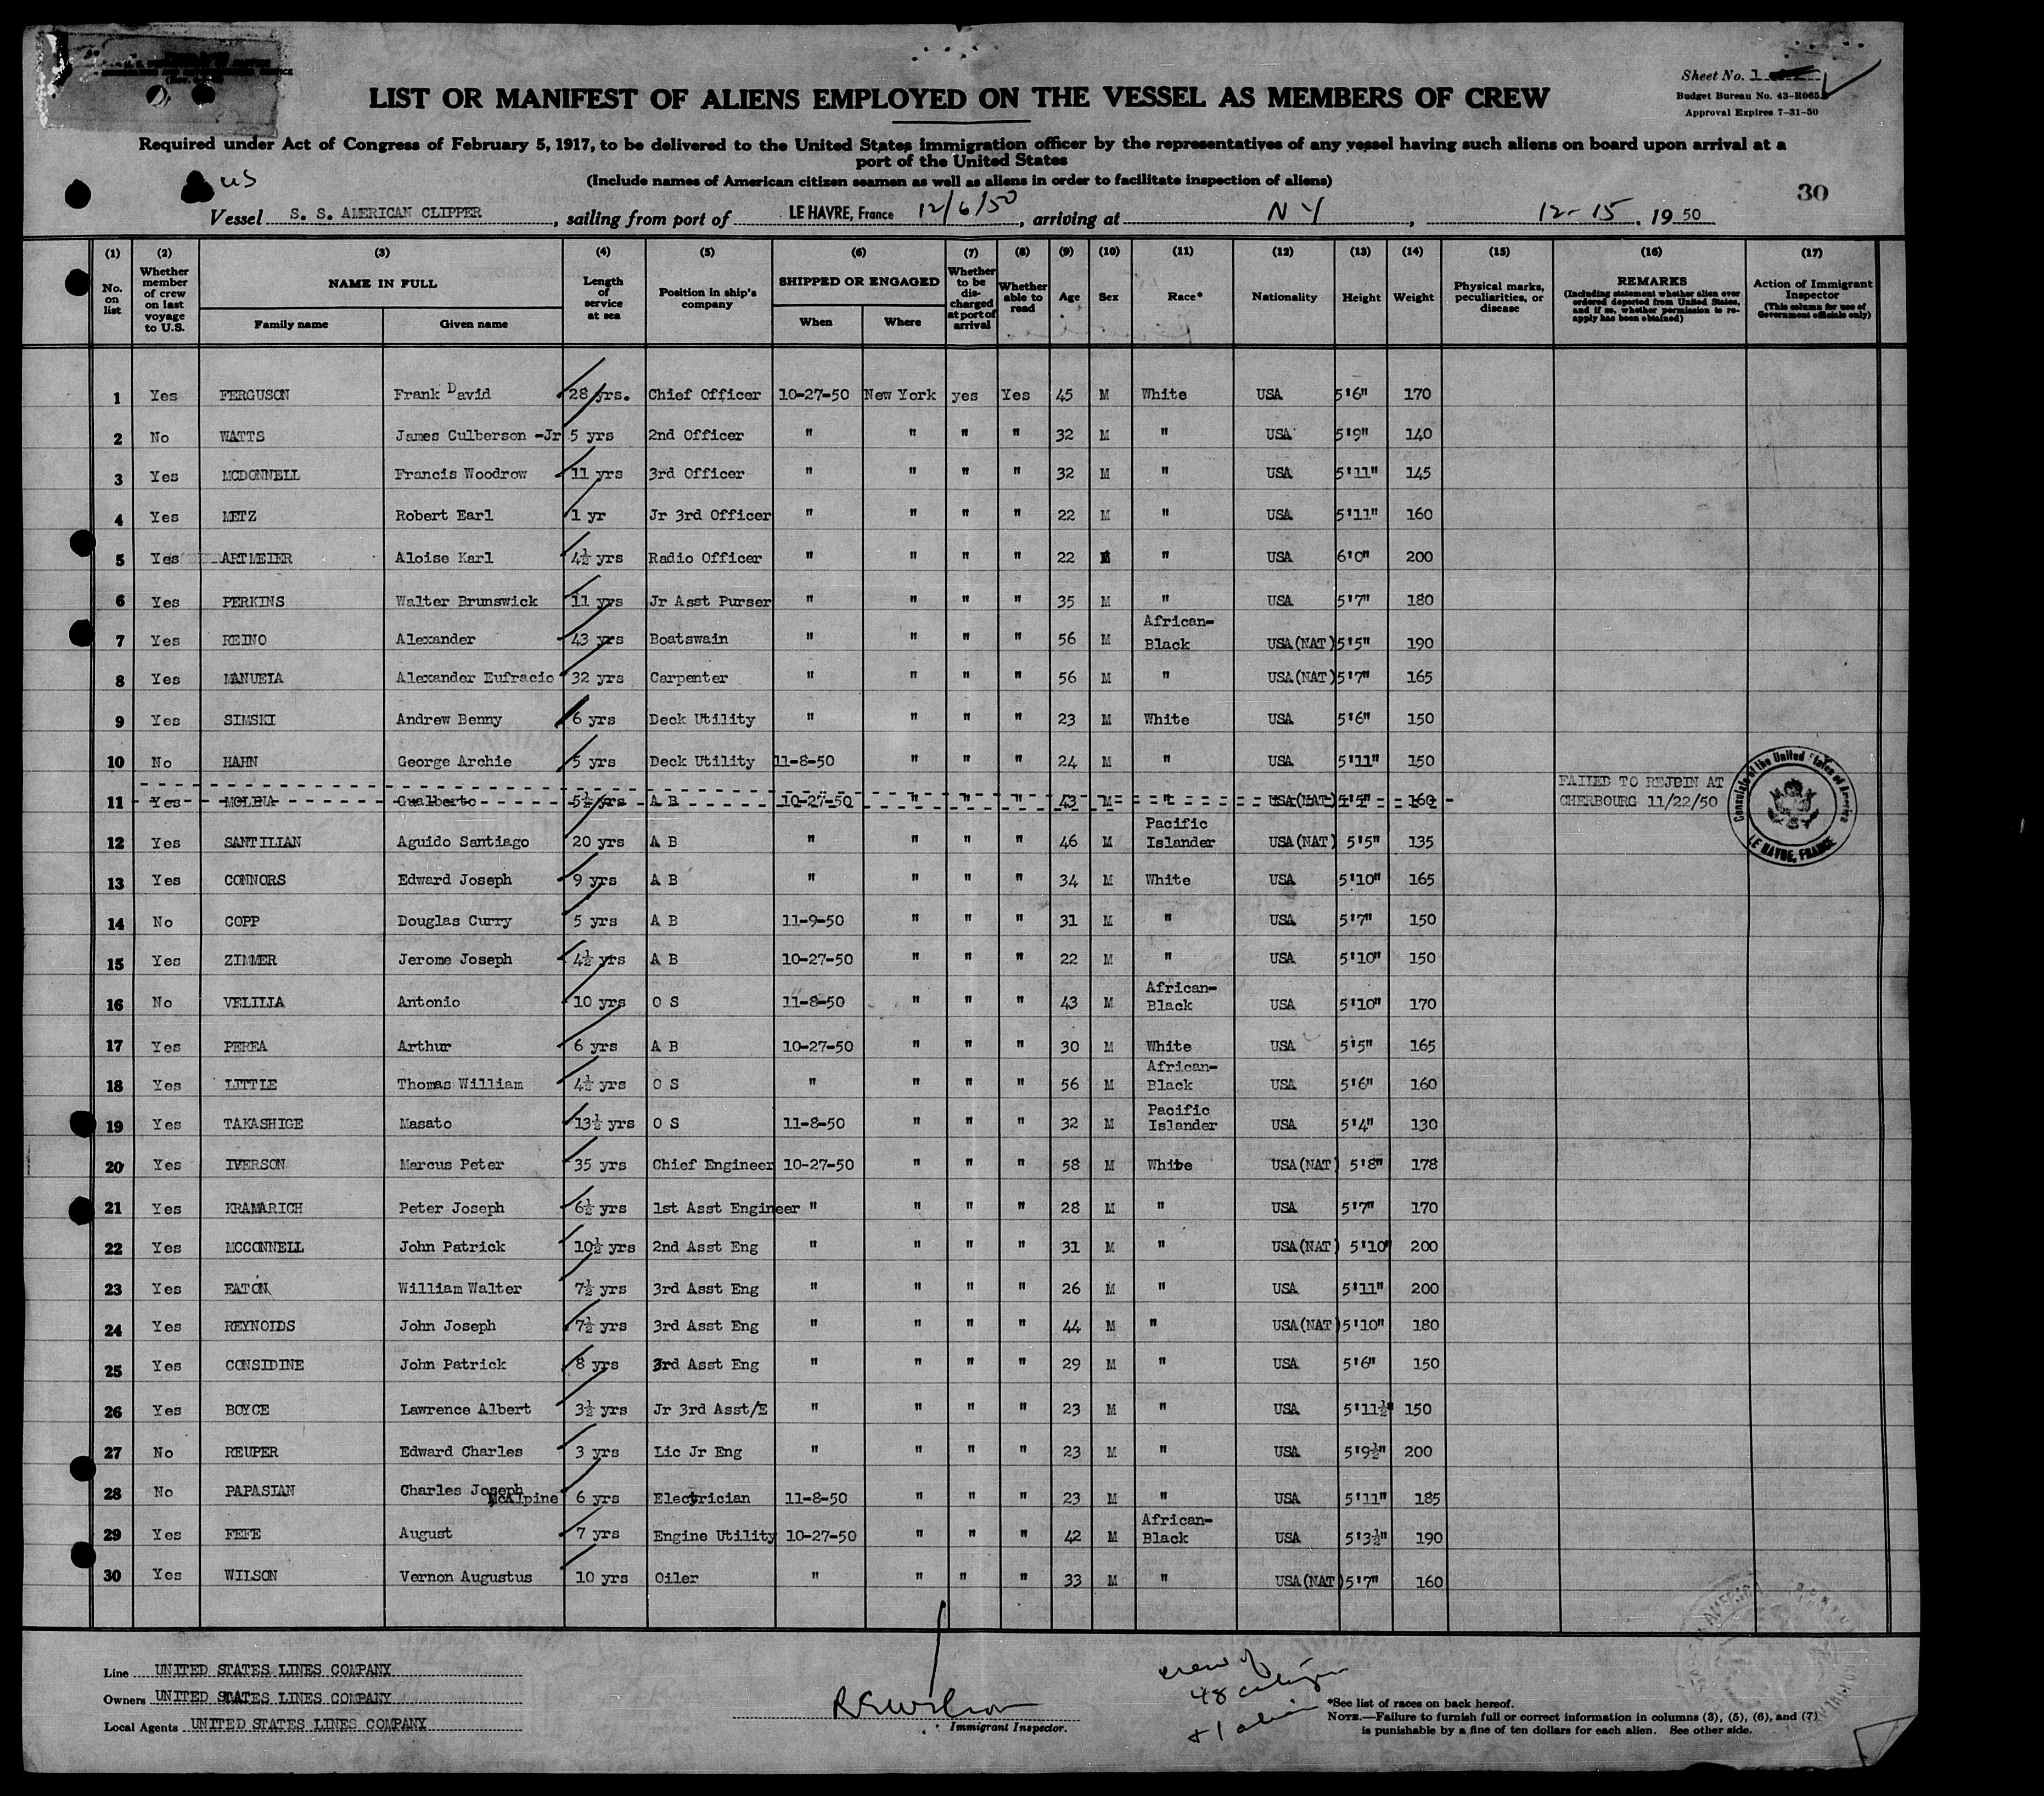 Sheet No. 1
Budget Bureau No. 43-R065
Approval Expires 7-31-50
LIST OR MANIFEST OF ALIENS EMPLOYED ON THE VESSEL AS MEMBERS OF CREW
Required under Act of Congress of February 5, 1917, to be delivered to the United States immigration officer by the representatives of any vessel having such aliens on board upon arrival at a
port of the United States
(Include names of American citizen seamen as well as aliens in order to facilitate inspection of aliens)
us
30
Vessel S. S. AMERICAN CLIPPER, sailing from port of LE HAVRE, France 12/6/50, arriving at N Y, 12-15, 19 50
(1) No. on list (2) Whether member of crew on last voyage to U.S. (3) NAME IN FULL Family name Given name (4) Length of service at sea (5) Position in ship's company (6) SHIPPED OR ENGAGED When Where (7) Whether to be discharged at port of arrival (8) Whether able to read (9) Age (10) Sex (11) Race* (12) Nationality (13) Height (14) Weight (15) Physical marks, peculiarities, or disease (16) REMARKS (Including statement whether alien ever ordered deported from United States, and if so, whether permission to reapply has been obtained) (17) Action of Immigrant Inspector (This column for use of Government officials only)
1 Yes FERGUSON Frank David 28 yrs. Chief Officer 10-27-50 New York yes Yes 45 M White USA 5'6" 170
2 No WATTS James Culberson -Jr 5 yrs 2nd Officer " " " " 32 M " USA 5'9" 140
3 Yes MCDONNELL Francis Woodrow 11 yrs 3rd Officer " " " " 32 M " USA 5'11" 145
4 Yes METZ Robert Earl 1 yr Jr 3rd Officer " " " " 22 M " USA 5'11" 160
5 Yes ARTMEIER Aloise Karl 4½ yrs Radio Officer " " " " 22 " USA 6'0" 200
6 Yes PERKINS Walter Brunswick 11 yrs Jr Asst Purser " " " " 35 M " USA 5'7" 180
7 Yes REINO Alexander 43 yrs Boatswain " " " " 56 M African-Black USA(NAT) 5'5" 190
8 Yes MANUELA Alexander Eufracio 32 yrs Carpenter " " " " 56 M " USA(NAT) 5'7" 165
9 Yes SIMSKI Andrew Benny 6 yrs Deck Utility " " " " 23 M White USA 5'6" 150
10 No HAHN George Archie 5 yrs Deck Utility 11-8-50 " " " 24 M " USA 5'11" 150
11 Yes MOLINA Gualberto 5½ yrs A B 10-27-50 " " " 43 M " USA(NAT) 5'5" 160 FAILED TO REJOIN AT CHERBOURG 11/22/50
Consulate of the United States of America
LE HAVRE, FRANCE
12 Yes SANTILLAN Aguido Santiago 20 yrs A B " " " " 46 M Pacific Islander USA(NAT) 5'5" 135
13 Yes CONNORS Edward Joseph 9 yrs A B " " " " 34 M White USA 5'10" 165
14 No COPP Douglas Curry 5 yrs A B 11-9-50 " " " 31 M " USA 5'7" 150
15 Yes ZIMMER Jerome Joseph 4½ yrs A B 10-27-50 " " " 22 M " USA 5'10" 150
16 No VELILLA Antonio 10 yrs O S 11-8-50 " " " 43 M African-Black USA 5'10" 170
17 Yes PEREA Arthur 6 yrs A B 10-27-50 " " " 30 M White USA 5'5" 165
18 Yes LITTLE Thomas William 4½ yrs O S " " " " 56 M African-Black USA 5'6" 160
19 Yes TAKASHIGE Masato 13½ yrs O S 11-8-50 " " " 32 M Pacific Islander USA 5'4" 130
20 Yes IVERSON Marcus Peter 35 yrs Chief Engineer 10-27-50 " " " 58 M White USA(NAT) 5'8" 178
21 Yes KRAMARICH Peter Joseph 6½ yrs 1st Asst Engineer " " " " 28 M " USA 5'7" 170
22 Yes MCCONNELL John Patrick 10½ yrs 2nd Asst Eng " " " " 31 M " USA(NAT) 5'10" 200
23 Yes EATON William Walter 7½ yrs 3rd Asst Eng " " " " 26 M " USA 5'11" 200
24 Yes REYNOLDS John Joseph 7½ yrs 3rd Asst Eng " " " " 44 M " USA(NAT) 5'10" 180
25 Yes CONSIDINE John Patrick 8 yrs 3rd Asst Eng " " " " 29 M " USA 5'6" 150
26 Yes BOYCE Lawrence Albert 3½ yrs Jr 3rd Asst/E " " " " 23 M " USA 5'11½" 150
27 No REUPER Edward Charles 3 yrs Lic Jr Eng " " " " 23 M " USA 5'9½" 200
28 No PAPASIAN Charles Joseph McAlpine 6 yrs Electrician 11-8-50 " " " 23 M " USA 5'11" 185
29 Yes FEFE August 7 yrs Engine Utility 10-27-50 " " " 42 M African-Black USA 5'3½" 190
30 Yes WILSON Vernon Augustus 10 yrs Oiler " " " " 33 M " USA(NAT) 5'7" 160
Line UNITED STATES LINES COMPANY
Owners UNITED STATES LINES COMPANY
Local Agents UNITED STATES LINES COMPANY
R E Wilson
Immigrant Inspector.
crew of
48 citizen
+ 1 alien
*See list of races on back hereof.
NOTE.—Failure to furnish full or correct information in columns (3), (5), (6), and (7)
is punishable by a fine of ten dollars for each alien. See other side.